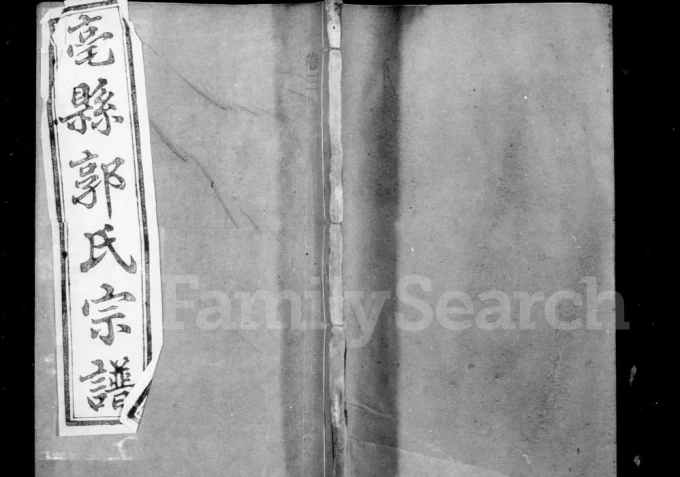 亳縣郭氏宗譜
卷二
FamilySearch